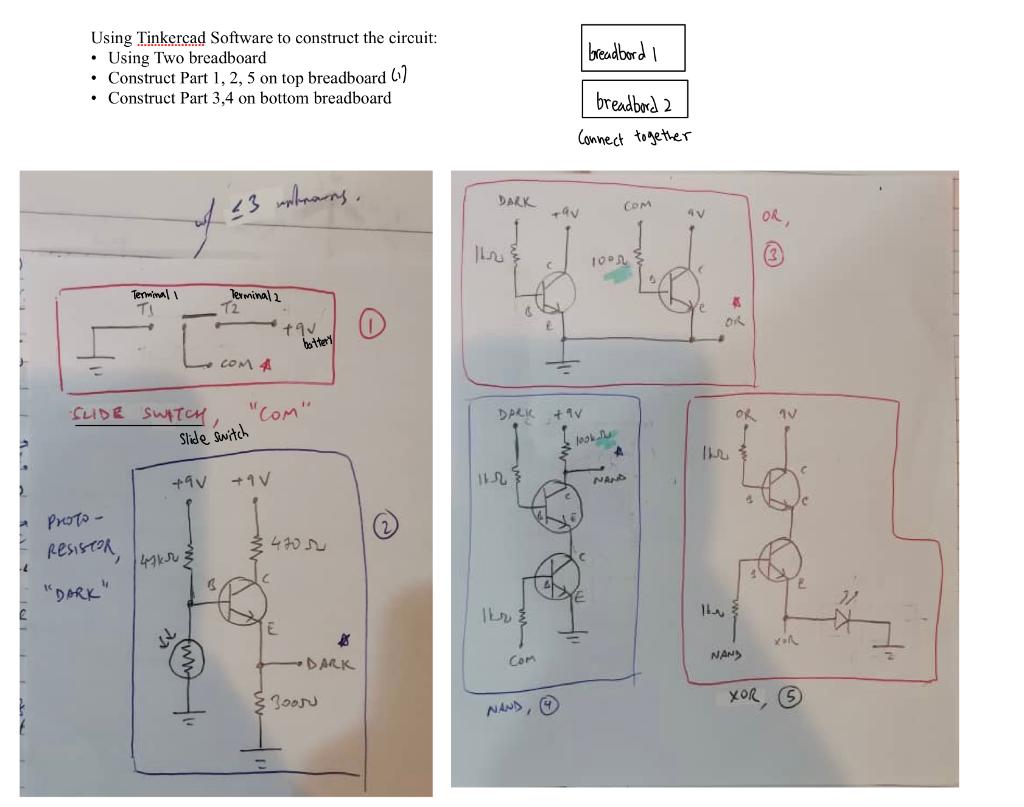 Using Tinkercad Software to construct the circuit:
• Using Two breadboard
• Construct Part 1, 2, 5 on top breadboard (1)
• Construct Part 3,4 on bottom breadboard
breadbord 1
breadbord 2
Connect together
w/ ≤3 unknowns.
Terminal 1
Terminal 2
T1
T2
+9V
battery
COM
1
SLIDE SWITCH, "COM"
Slide switch
PHOTO-
RESISTOR,
"DARK"
2
+9V +9V
47kΩ
470Ω
B
C
E
DARK
300Ω
DARK
+9V
COM
9V
OR,
3
1kΩ
100Ω
C
B
E
C
B
E
OR
DARK +9V
100kΩ
1kΩ
NAND
C
B
E
C
B
E
1kΩ
COM
NAND, 4
OR 9V
1kΩ
C
B
E
B
E
1kΩ
NAND
XOR
XOR, 5